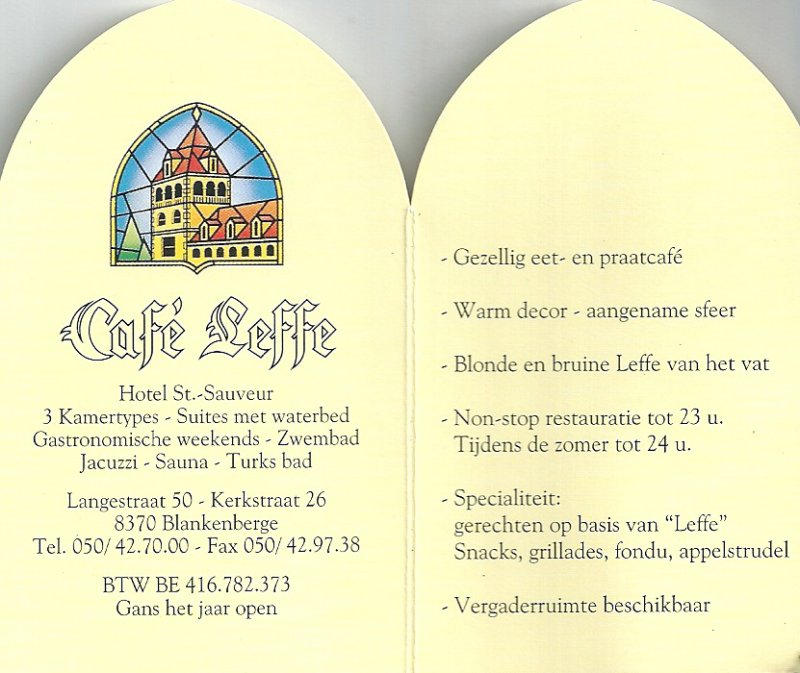 Café Leffe
Hotel St.-Sauveur
3 Kamertypes - Suites met waterbed
Gastronomische weekends - Zwembad
Jacuzzi - Sauna - Turks bad
Langestraat 50 - Kerkstraat 26
8370 Blankenberge
Tel. 050/ 42.70.00 - Fax 050/ 42.97.38
BTW BE 416.782.373
Gans het jaar open
- Gezellig eet- en praatcafé
- Warm decor - aangename sfeer
- Blonde en bruine Leffe van het vat
- Non-stop restauratie tot 23 u.
Tijdens de zomer tot 24 u.
- Specialiteit:
gerechten op basis van “Leffe”
Snacks, grillades, fondu, appelstrudel
- Vergaderruimte beschikbaar